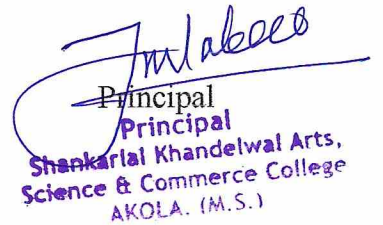 Principal
Principal
Shankarlal Khandelwal Arts,
Science & Commerce College
AKOLA. (M.S.)